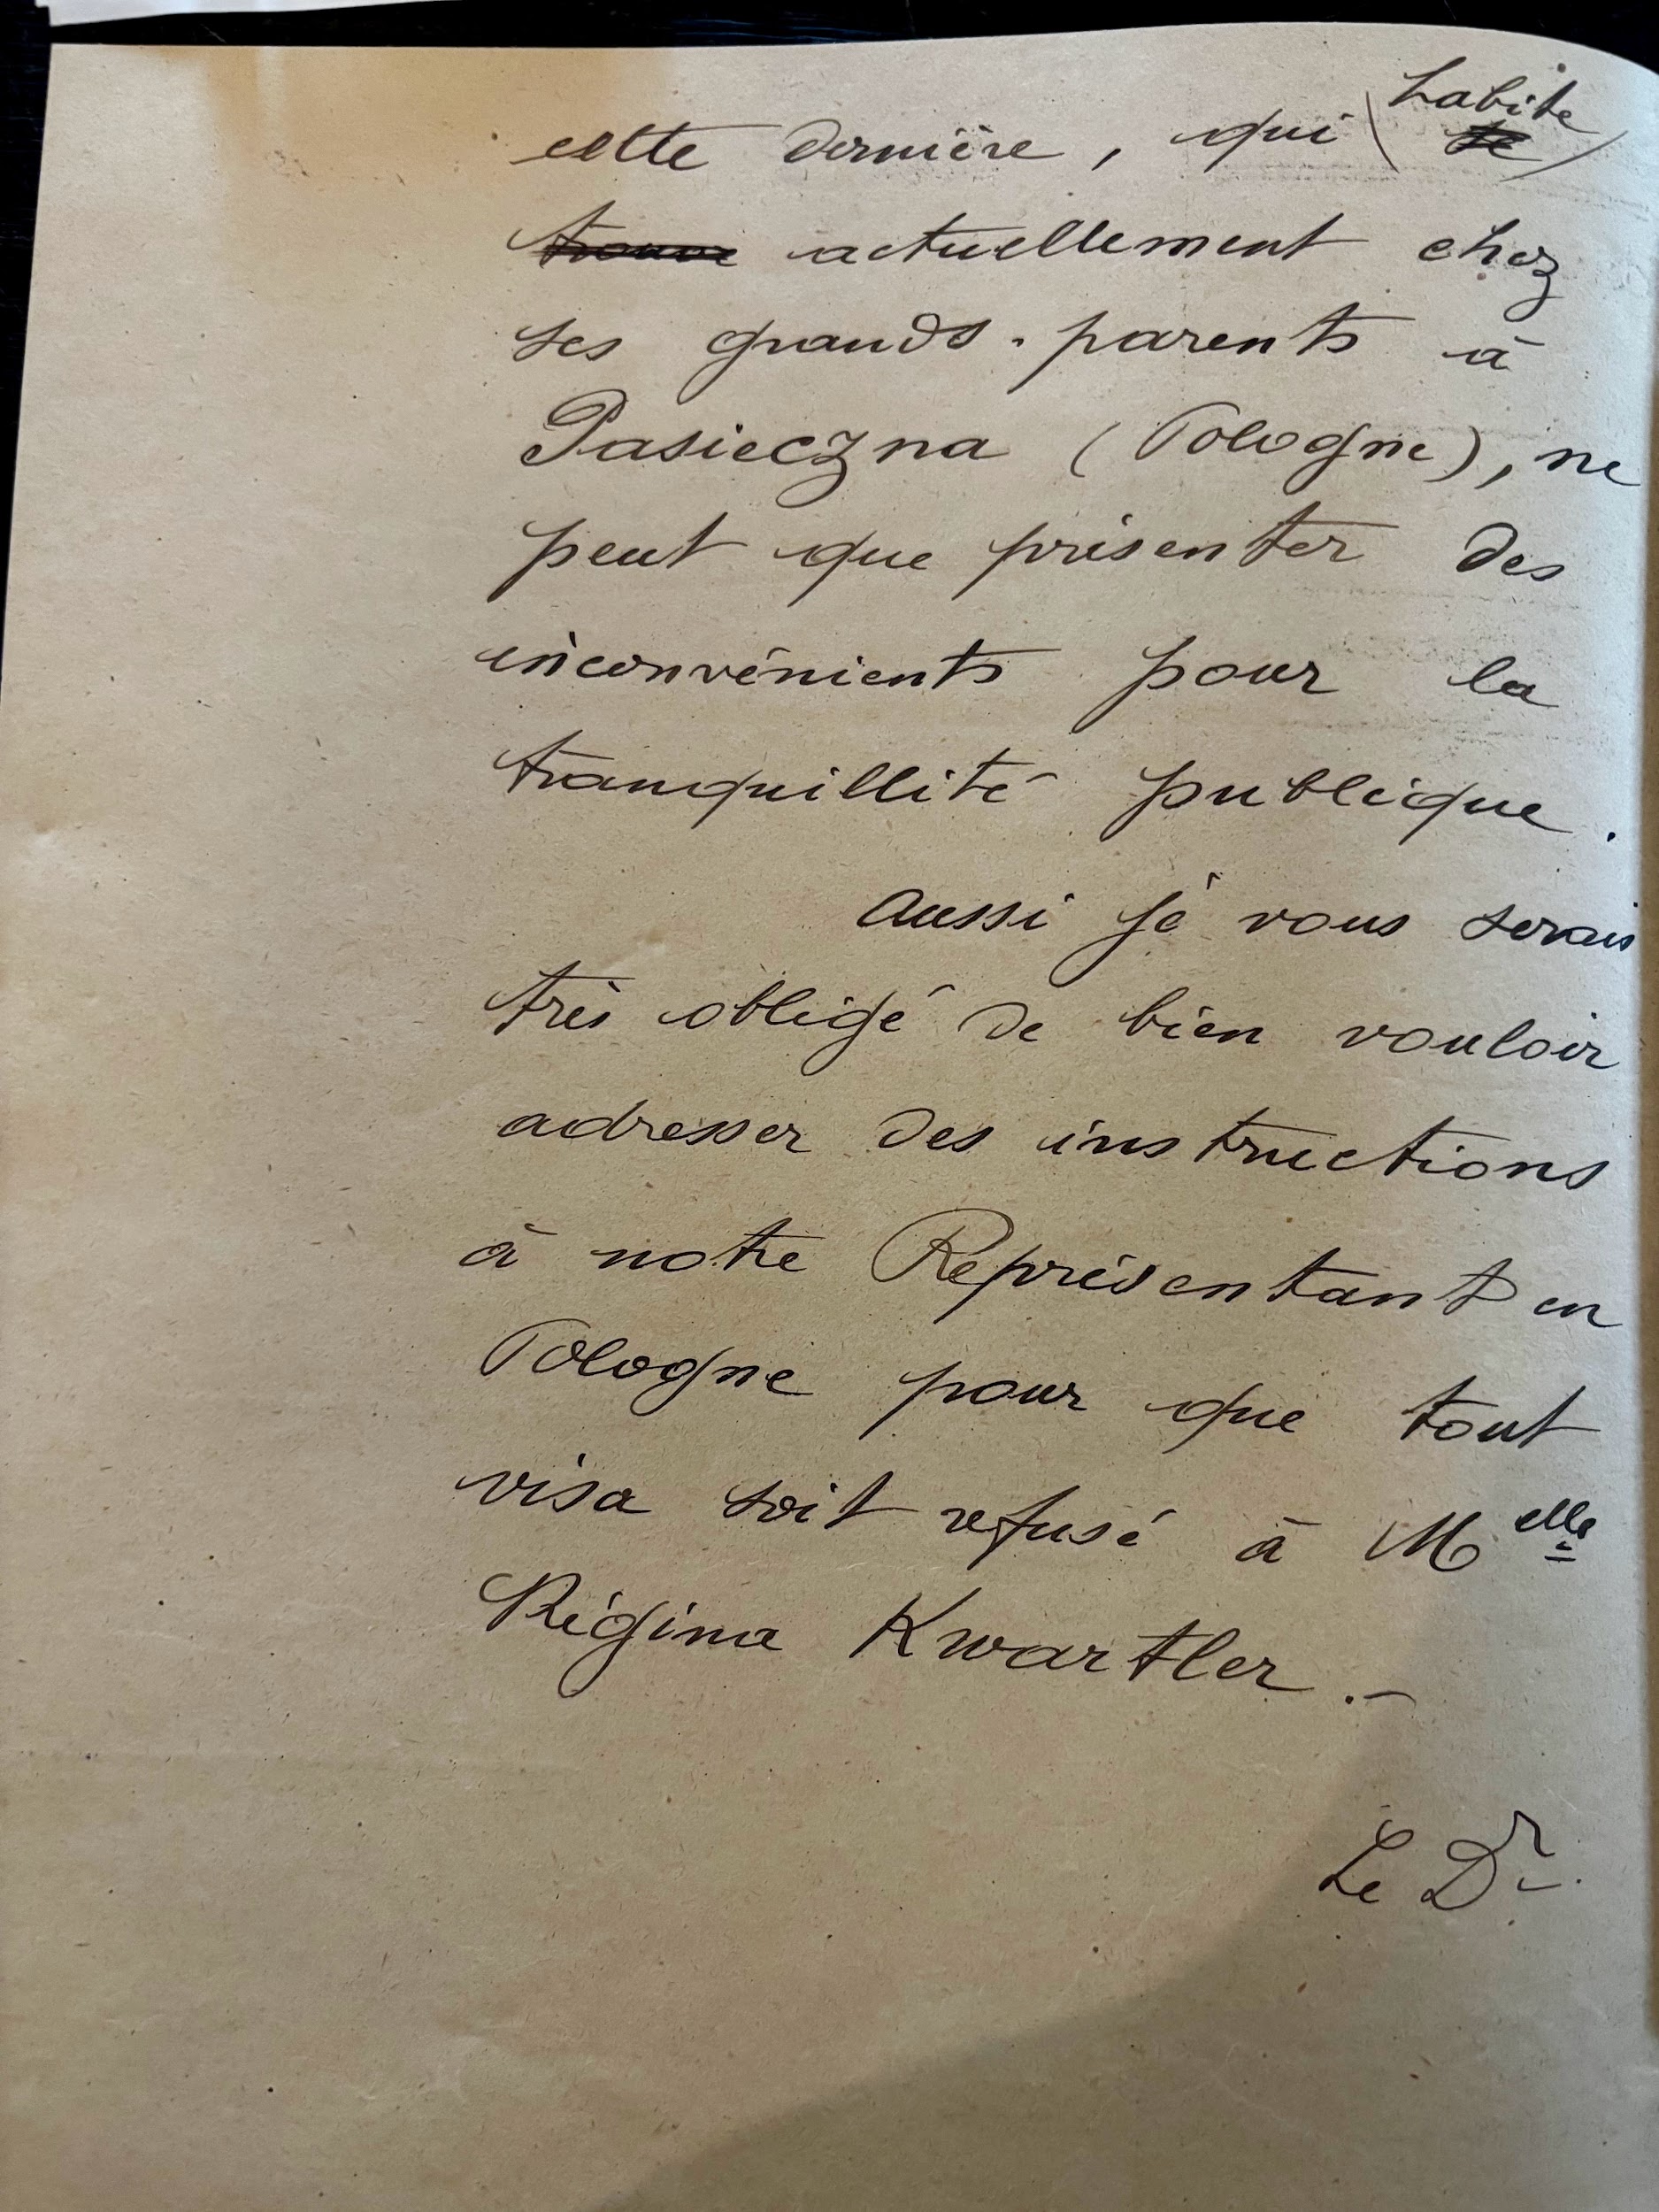 cette dernière, qui (habite se)
trouve actuellement chez
ses grands-parents à
Pasieczna (Pologne), ne
peut que présenter des
inconvénients pour la
tranquillité publique.
Aussi je vous serais
très obligé de bien vouloir
adresser des instructions
à notre Représentant en
Pologne pour que tout
visa soit refusé à Melle
Régina Kwartler.-
Le Dr.